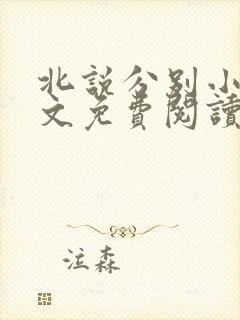 北說分別小
文免費閱讀
泣森